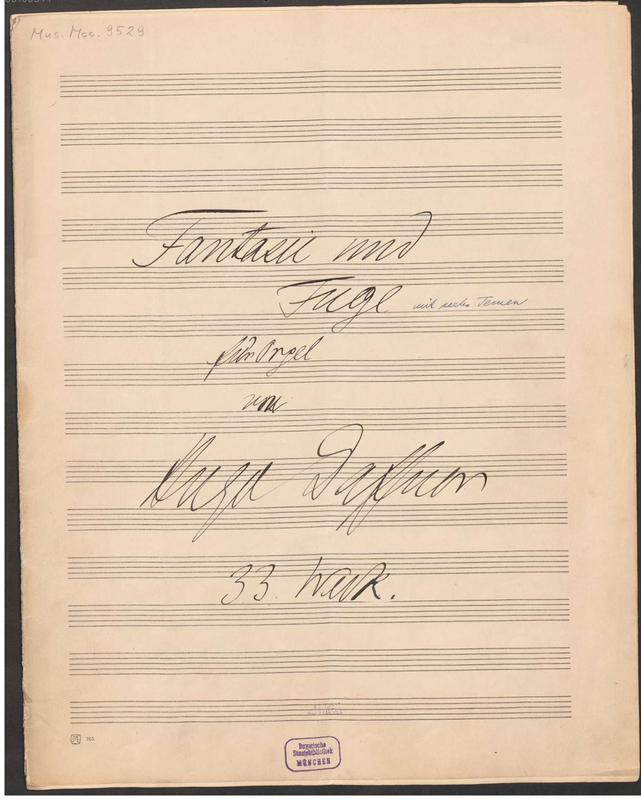 Mus. Mss. 9529
Fantasie und
Fuge mit sechs Temen
für Orgel
von
Hugo Daffner
33. Werk.
Bayerische
Staatsbibliothek
MÜNCHEN